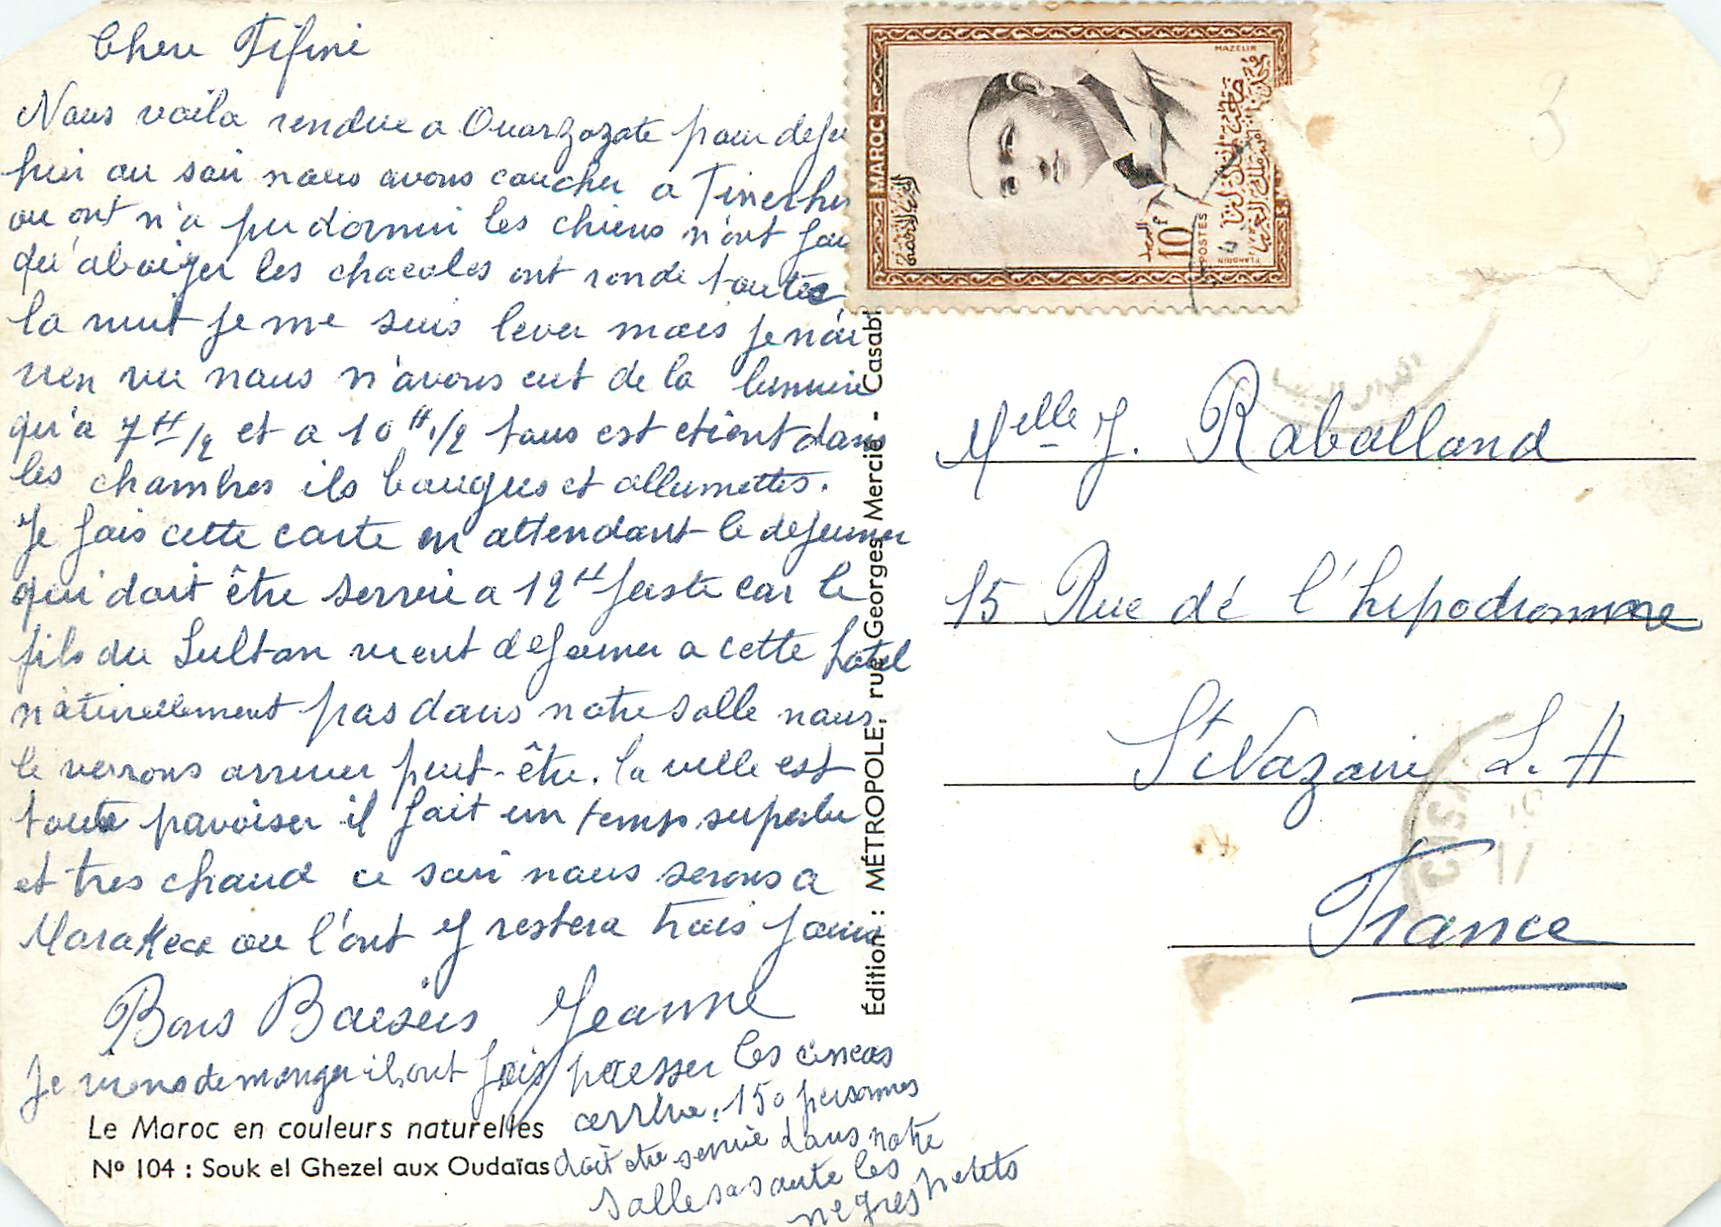 Chere Fifine
Nous voila rendue a Ouarzazate pour deje
hui au soir nous avons coucher a Tinerhir
ou ont n'a pu dormir les chiens n'ont fai
qu'aboiyer les chacales ont ronde toutes
la nuit je me suis lever mais je n'ai
rien vu nous n'avons eut de la lumiere
qu'a 7 H 1/2 et a 10 H 1/2 tous est eteint dans
les chambres ils bougies et allumettes.
Je fais cette carte en attendant le dejeuner
qui doit être servie a 12 H juste car le
fils du Sultan vient dejeuner a cette hotel
naturellement pas dans notre salle nous
le verrons arriver peut-être. la ville est
toute pavoiser il fait un temps superbe
et tres chaud ce soir nous serons a
Marakece ou l'ont y restera trois jours
Bons Baisers Jeanne
Je viens de manger ils ont fais passer les
arrive. 150 personnes
doit etre servie dans notre
salle sa saute les
negres petits
Le Maroc en couleurs naturelles
Nº 104 : Souk el Ghezel aux Oudaïas
Édition : MÉTROPOLE, rue Georges Mercié - Casabl
MAROC
10F
POSTES
MAZELIN
المملكة المغربية
البريد
Melle J. Raballand
15 Rue dé l'hipodromme
St Nazaire L. A
France